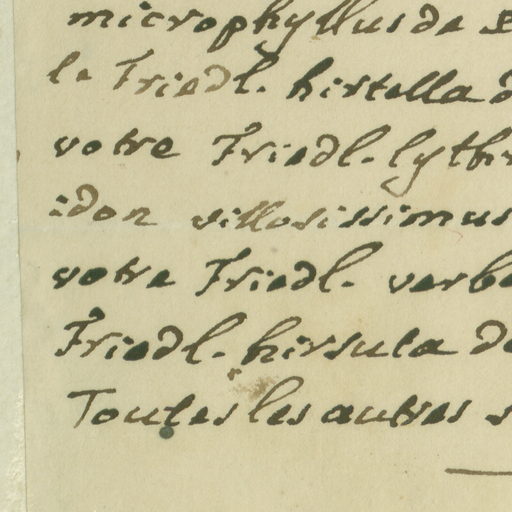 microphyllus de
le Friedl. hirtella d
votre Friedl. lythr
idon villosissimus
votre Friedl. verbe
Friedl. hirsuta de
Toutes les autres s